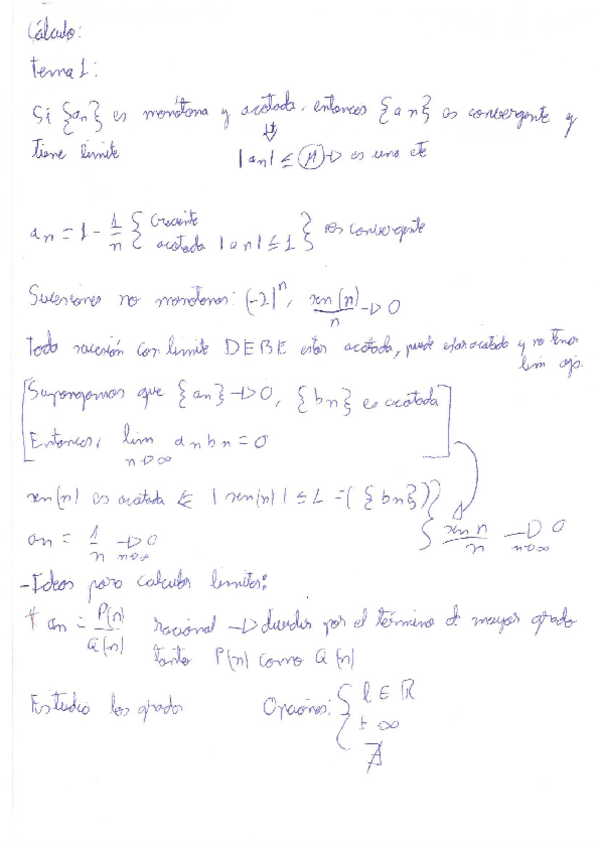 Cálculo:
Tema 1:
Si {an} es monótona y acotada, entonces {an} es convergente y
tiene limite ⇓ |an| ≤ M → es una cte
an = 1 - 1/n { Creciente acotada |an| ≤ 1 } es convergente
Sucesiones no monotonas: (-2)^n, sen(n)/n → 0
Toda sucesión con limite DEBE estar acotada, puede estar acotada y no tener
lim ojo.
[Supongamos que {an} → 0, {bn} es acotada
Entonces, lim n→∞ anbn = 0]
sen(n) es acotada |sen(n)| ≤ 1 = ({bn})
an = 1/n → 0 n→∞ { sen n/n → 0 n→∞
- Ideas para calcular limites:
an = P(n)/Q(n) racional → dividir por el término de mayor grado
tanto P(n) como Q(n)
Estudio los grados Opciones: { l ∈ R
± ∞
∄